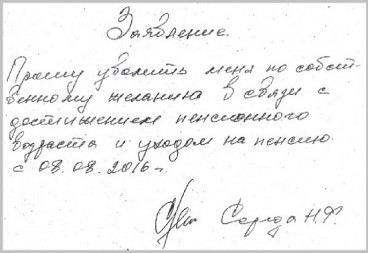 Заявление.
Прошу уволить меня по собст-
венному желанию в связи с
достижением пенсионного
возраста и уходом на пенсию
с 08.08.2016г.
Середа Н.Ф.